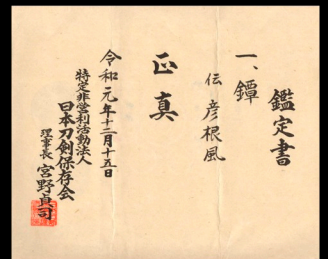 鑑定書
一、鐔
伝 彦根風
正真
令和元年十二月十五日
特定非営利活動法人
日本刀剣保存会
理事長 宮野貞司